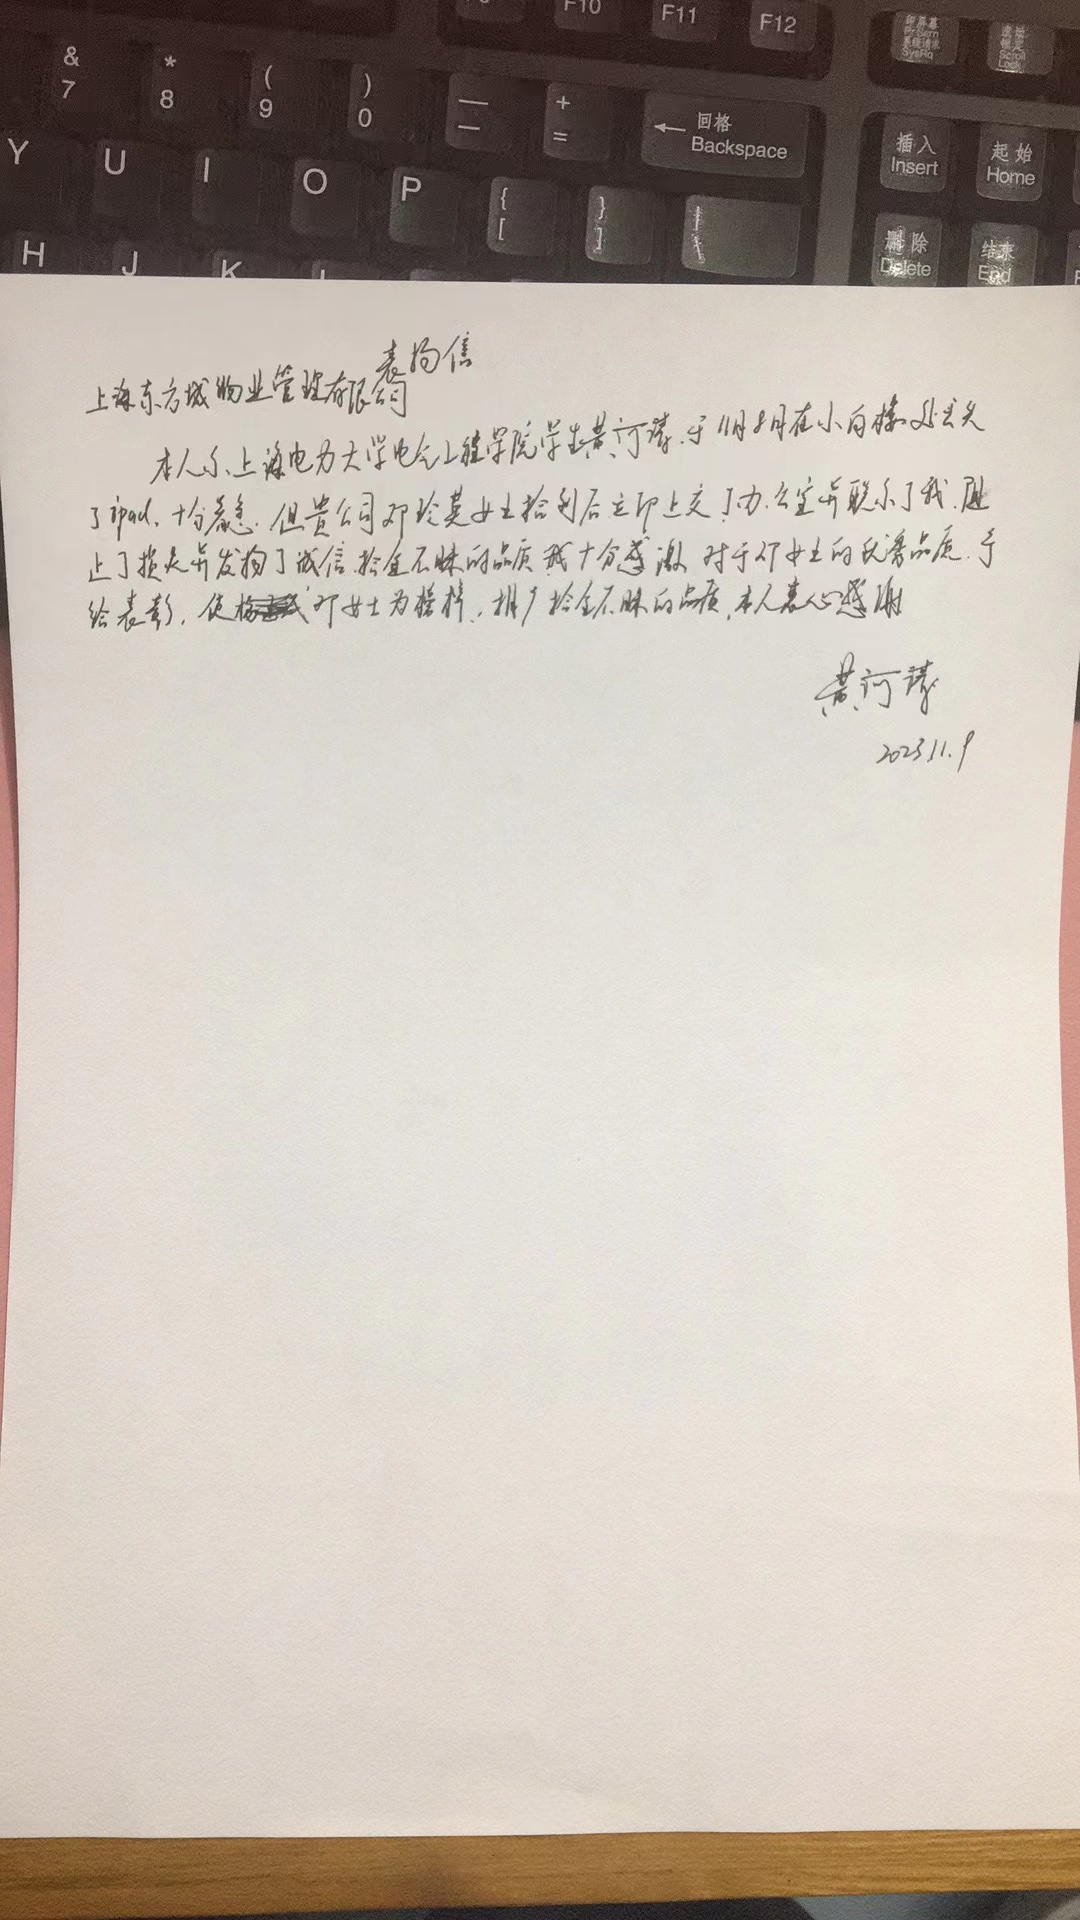 F10 F11 F12
印屏幕 PrScrn 系统请求 SysRq
滚动 锁定 Scroll Lock
& 7 * 8 ( 9 ) 0 — + = ← 回格 Backspace
插入 Insert 起始 Home
Y U I O P { [ } ]
删除 Delete 结束 End
H J K
表扬信
上海东方城物业管理有限公司
本人系上海电力大学电气工程学院学生黄河清,于11月8月在小白楼处丢失
了ipad,十分着急,但贵公司邓珍英女士捡到后立即上交了办公室并联系了我,阻
止了损失并发扬了诚信拾金不昧的品质我十分感激 对于邓女士的优秀品质,予
给表彰,使 邓女士为榜样,推广拾金不昧的品质,本人衷心感谢
黄河清
2023.11.9